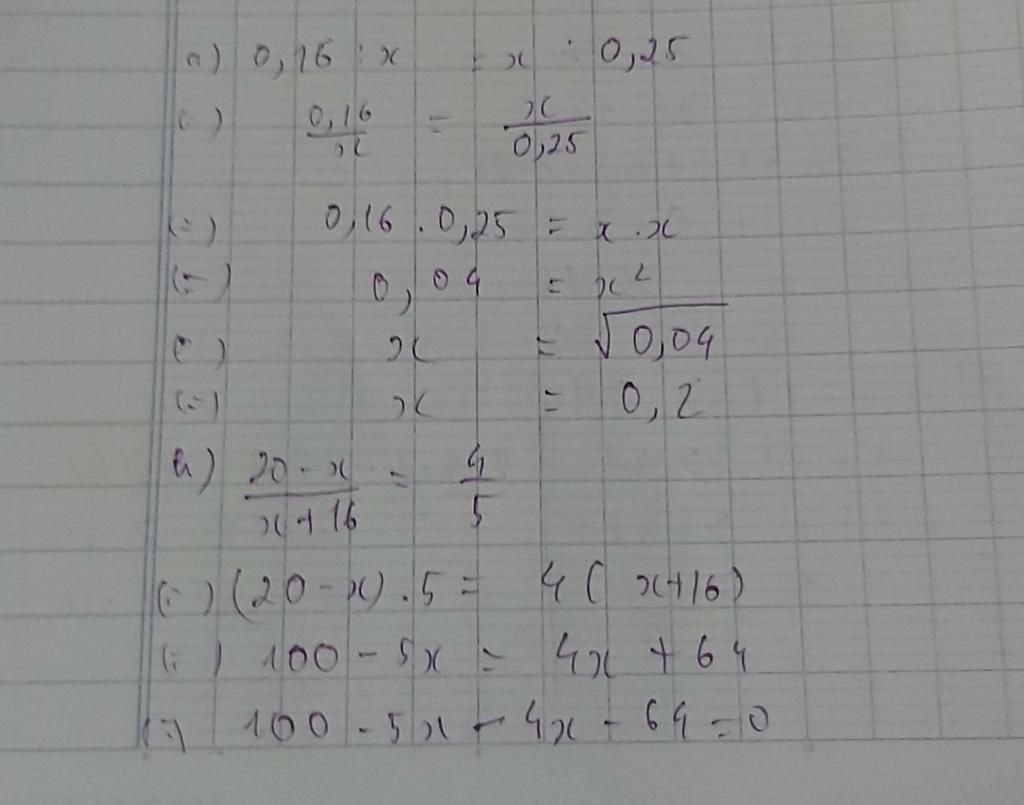 a) 0,16 : x = x : 0,25
(=) 0,16/x = x/0,25
(=) 0,16 . 0,25 = x . x
(=) 0,04 = x²
(=) x = √0,04
(=) x = 0,2
a) 20 - x / x + 16 = 4/5
(=) (20 - x) . 5 = 4 ( x+16)
(=) 100 - 5x = 4x + 64
(=) 100 - 5x - 4x - 64 = 0